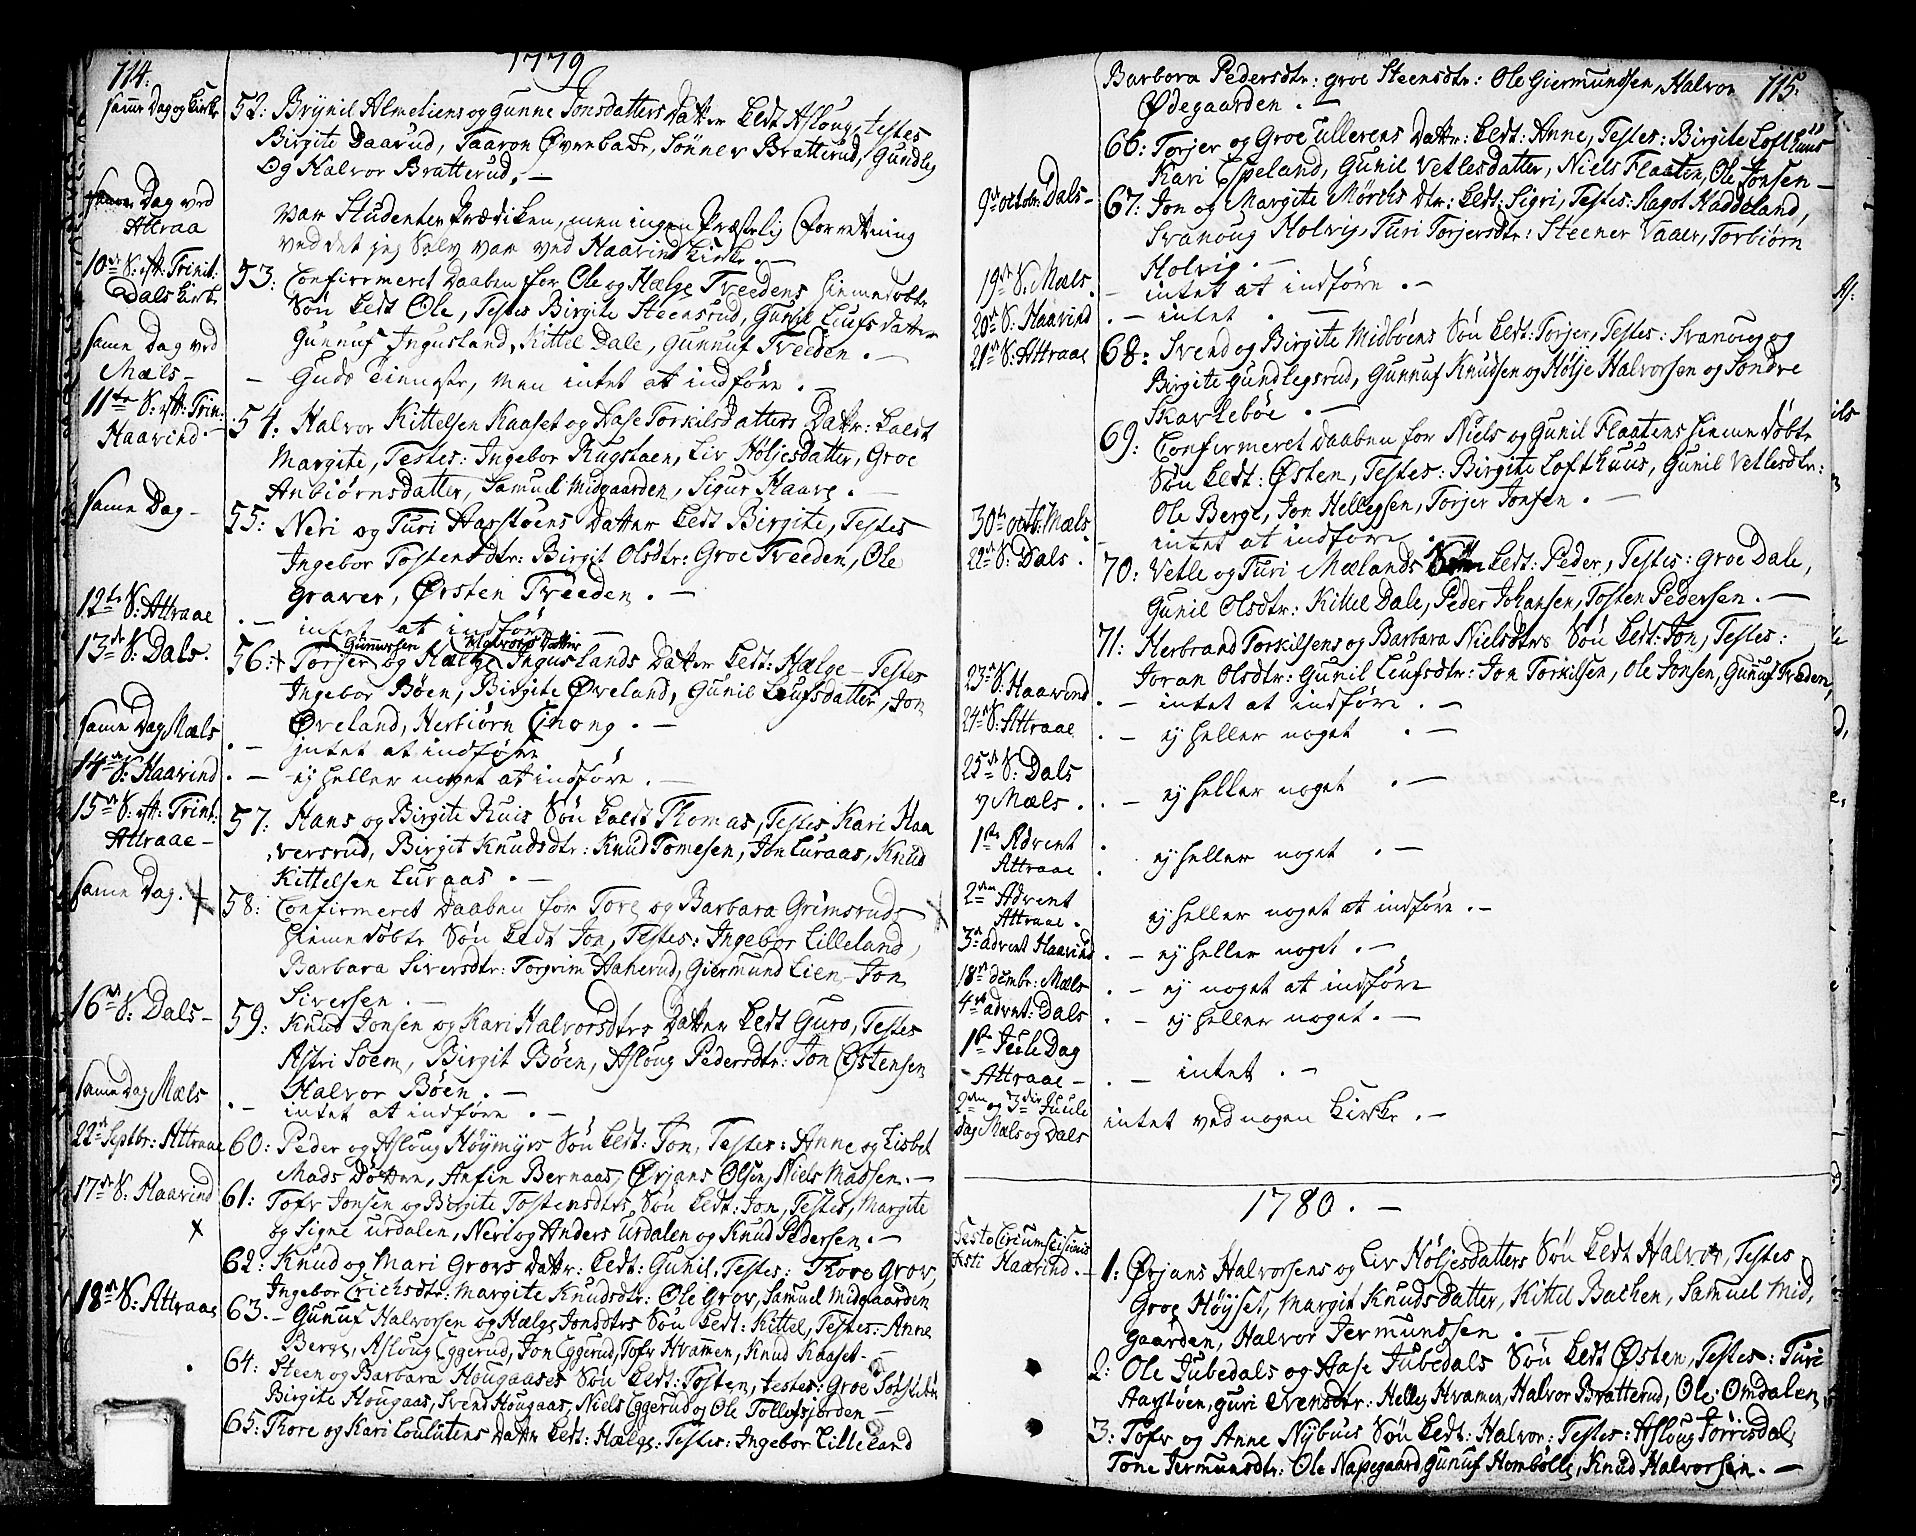 114.
1779
Same Dag og Kirke
52: Brynil Almeliens og Gunne Jonsdatters Datter kedt Aslaug, testes
Birgite Daarud, Taaron Øvrebade, Sønner Bratterud, Gundley
Og Halvor Bratterud. —
Same Dag ved
Attraa
var Studenter Prædiken, men ingen Præstelig Forretning
ved det jeg Selv var ved Haavind Kirke. —
10de S. eft: Trinit:
Dals Kirke
53: Confirmeret Daaben for Ole og Hælge Treedens hiemedøbte
Søn kedt Ole, Testes Birgite Steensrud, Gunil Leufsdatter
Gunnuf Ingusland, Kittel Dale, Gunnuf Treeden. —
Same Dag ved
Mæls —
— Guds Tieneste, men intet at indføre. —
11te S. eft: Trin:
Haavind. —
54: Halvor Kittelsen Kaaset og Aase Torkilsdatters Datr: kaldt
Margite, Testes: Ingebor Rugstaen, Liv Høljesdatter, Groe
Anbiørnsdatter, Samuel Midgaarden, Sigur Haave. —
Same Dag —
55: Neri og Turi Aasstøens Datter kedt Birgite, Testes
Ingebor Tostensdtr: Birgit Olsdtr: Groe Treeden, Ole
Graver, Ørsten Treeden. —
12te S: Attraae
. — intet at indføre —
13de S: Dals.
Gunnufsen Halvors Datter
56: + Torjer og Hælge Inguslands Datter kedt: Hælge — Testes
Ingebor Bøen, Birgite Øveland, Gunil Leufsdatter, Jon
Øveland, Herbiørn Einong. —
Same Dag Mæls
. — intet at indføre
14de S: Haavind
. — ej heller noget at indføre. —
15de S. eft: Trint:
Attraae —
57: Hans og Birgite Ruis Søn kaldt Thomas, Testes Kari Haa
versrud, Birgit Knudsdtr: Knud Tomesen, Jon Luraas, Knud
Kittelsen Luraas. —
Same Dag. +
58: Confirmeret Daaben for Tore og Barbara Grimsruds
hiemedøbte Søn kedt Jon, Testes: Ingebor Lilleland,
Barbara Siversdtr: Torgrim Haherud, Giermund Lien — Jon
Siversen. —
16de S: Dals —
59: Knud Jonsen og Kari Halvorsdtrs Datter kedt Guro, Testes
Astri Soem, Birgit Bøen, Aslaug Pedersdtr: Jon Østensen
Halvor Bøen. —
Same Dag Mæls
. — intet at indføre. —
22de Septbr: Attraae
60: Peder og Aslaug Høymyrs Søn kedt: Jon, Testes: Anne og Lisbet
Mads Døttre, Anfin Bernaas, Ørjans Olsen, Niels Madsen. —
17de S: Haavind
61: Tofr Jonsen og Birgite Tostensdtrs Søn kedt: Jon, Testes, Margite
og Signe Urdalen, Neri og Anders Urdalen og Knud Pedersen. —
x
62: Knud og Mari Grovs Datr: kedt: Gunil, Testes: Thore Grov,
Ingebor Erichsdtr: Margite Knudsdtr: Ole Grov, Samuel Midgaarden
18de S: Attraae
63. — Gunuf Halvorsen og Hælge Jonsdtrs Søn kedt: Kittel, Testes: Anne
Berge, Aslaug Eggerud, Jon Eggerud, Tofr Hvamen, Knud Kaaset —
64: Steen og Barbara Hougaases Søn kedt: Tosten, testes: Groe
Birgite Hougaas, Svend Hougaas, Niels Eggerud og Ole Tollefsjorden —
65: Thore og Kari Loulutens Datter kedt: Hælge: Testes: Ingebor Lilleland
115.
Barbora Pedersdtr: Groe Steensdtr: Ole Giermundsen, Halvor
Ødegaarden. —
66: Torjer og Groe Ullerens Dattr: kedt: Anne, Testes: Birgite Lofthuus
Kari Espeland, Gunil Vetlesdatter, Niels Flaaten, Ole Jonsen —
9de octobr: Dals —
67: Jon og Margite Mørchs Dtr: kedt: Sigri, Testes: Aagot Haddeland,
Svanoug Holvig, Turi Torjersdtr: Steener Vaaer, Torbiørn
Holvig. —
19de S. Mæls.
— intet at indføre. —
20de S. Haavind
. — intet. —
21de S: Attraae
68: Svend og Birgite Midbøens Søn kedt: Torjer, Testes: Svanoug og
Birgite Gundlegsrud, Gunnuf Knudsen og Hølje Halvorsen og Sondre
Skarlebøe. —
69: Confirmeret Daaben for Niels og Gunil Flaatens hiemedøbte
Søn kedt: Østen, Testes: Birgite Lofthuus, Gunil Vetlesdtr:
Ole Berge, Jon Hellegsen, Torjer Jonsen. —
30te octb: Mæls.
— intet at indføre
22de S: Dals.
70: Vetle og Turi Mælands Søn kedt: Peder, Testes: Groe Dale,
Gunil Olsdtr: Kittel Dale, Peder Johansen, Tosten Pedersen. —
71: Herbrand Torkilsens og Barbara Nielsdtrs Søn kedt: Jon, Testes:
Joran Olsdtr: Gunil Leufsdtr: Jon Torkilsen, Ole Jonsen, Gunuf Treden,
23de S: Haavind
. — intet at indføre. —
24de S: Attraae
. — ej heller noget. —
25de S: Dals
og Mæls.
. — ej heller noget. —
1ste Advent
Attraae
. ej heller noget. —
2den Advent
Attraae.
ej heller noget at indføre. —
3de advent Haavind
. — ej heller noget. —
18de dembr: Mæls
. — ej noget at indføre
4de advent: Dals
. — ej heller noget. —
1ste Jule Dag
— Attraae —
. — intet. —
2den og 3die Juule
dag Mæls og Dals
intet ved nogen Kirke. —
1780. —
Festo Circumscisionis
Xsti Haavind. —
1: Ørjans Halvorsens og Liv Høljesdatters Søn kedt Halvor, Testes
Groe Høyset, Margit Knudsdatter, Kittel Bachen, Samuel Mid,
gaarden, Halvor Jermundsen. —
2: Ole Jubedals og Aase Jubedals Søn kedt Østen, Testes: Turi
Aasstøen, Guri Evensdtr: Helleg Hvamen, Halvor Bratterud, Ole Omdalen
3: Tofr og Anne Nybuis Søn kedt: Halvor: Testes: Aslaug Tørrisdal,
Tone Jermundsdtr: Ole Napegaard, Gunuf Hombølle, Knud Halvorsen. —